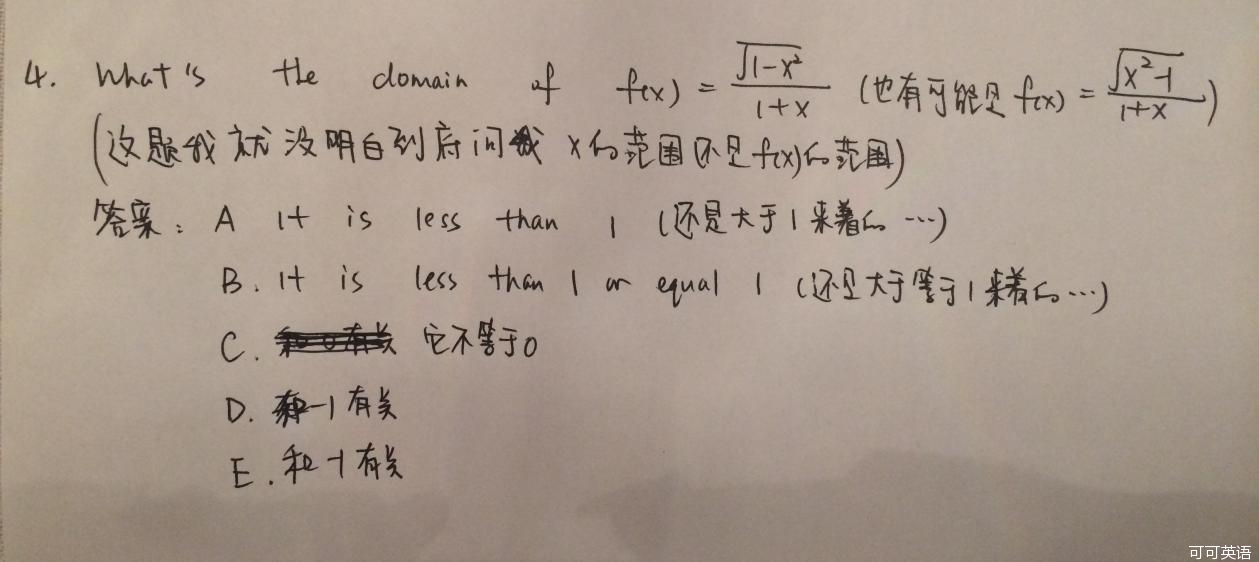 4. What's the domain of f(x) = √(1-x²)/(1+x) (也有可能是 f(x) = √(x²-1)/(1+x))
(这题我就没明白到底问我 x的范围还是f(x)的范围)
答案: A It is less than 1 (还是大于1来着的…)
B. It is less than 1 or equal 1 (还是大于等于1来着的…)
C. 它不等于0
D. 和-1有关
E. 和-1有关
可可英语